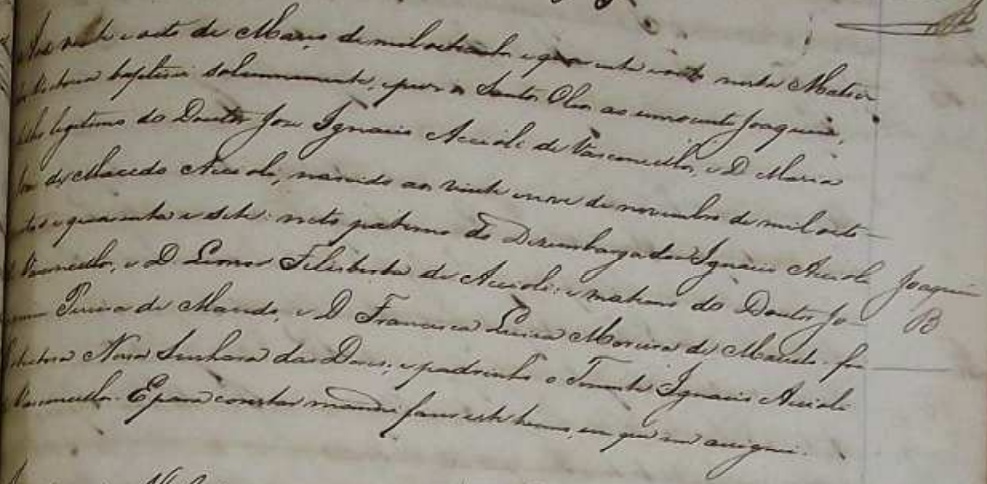 vinte e oito de Março de mil oitocentos e quarenta e oito nesta Matriz
baptisei solemnemente, e puz os Santos Oleos ao innocente Joaquim,
filho legitimo do Doutor Jose Ignacio Accioli de Vasconcellos, e D. Maria
de Macedo Accioli, nascido aos vinte e nove de novembro de mil oito-
tos e quarenta e sete: neto paterno do Dezembargador Ignacio Accioli
Vasconcellos, e D. Leonor Felisberta de Accioli: e materno do Doutor Jo-
Pereira de Macedo, e D. Francisca Luiza Moreira de Macedo. foi
Nossa Senhora das Dores; e padrinho o Tenente Ignacio Accioli
Vasconcellos. E para constar mandei fazer este termo, em que me assignei.
Joaquim
B